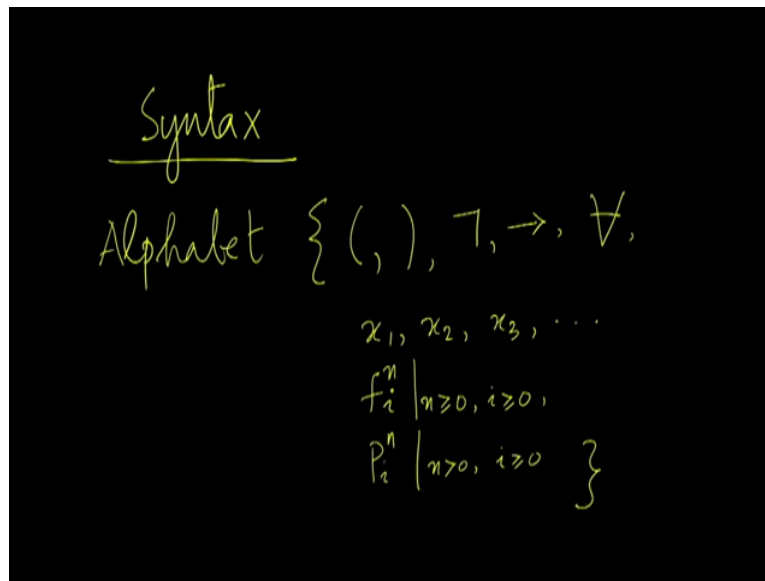 Syntax
Alphabet { (, ), ¬, →, ∀,
x₁, x₂, x₃, ...
fᵢⁿ | n≥0, i≥0,
Pᵢⁿ | n>0, i≥0 }